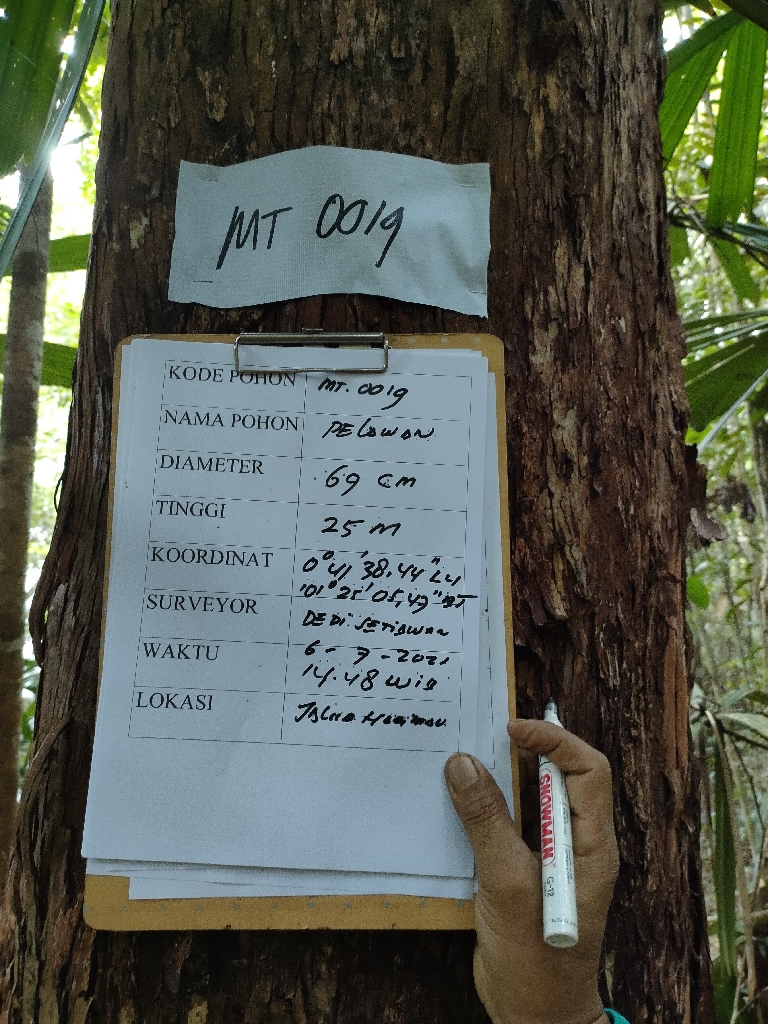 MT 0019
KODE POHON MT. 0019
NAMA POHON PELAWAN
DIAMETER 69 CM
TINGGI 25 M
KOORDINAT 0° 41' 38,44" LU
101° 25' 05,49" BT
SURVEYOR DEDI SETIAWAN
WAKTU 6 - 7 - 2021
14.48 WIB
LOKASI
SNOWMAN
G-12